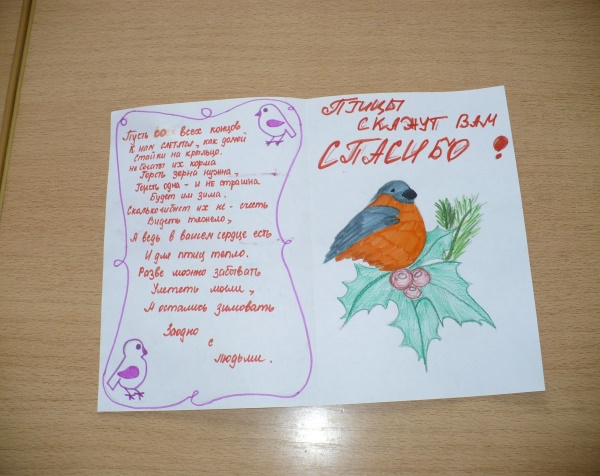 Пусть со всех концов
К нам слетятся, как домой
Стайки на крыльцо.
не богаты их корма
Горсть зерна нужна,
Горсть одна - и не страшна
Будет им зима.
Сколько гибнет их не - счесть
Видеть тяжело,
А ведь в вашем сердце есть
И для птиц тепло.
Разве можно забывать
Улететь могли,
А остались зимовать
Заодно
с
людьми.
ПТИЦЫ
СКАЖУТ ВАМ
СПАСИБО !